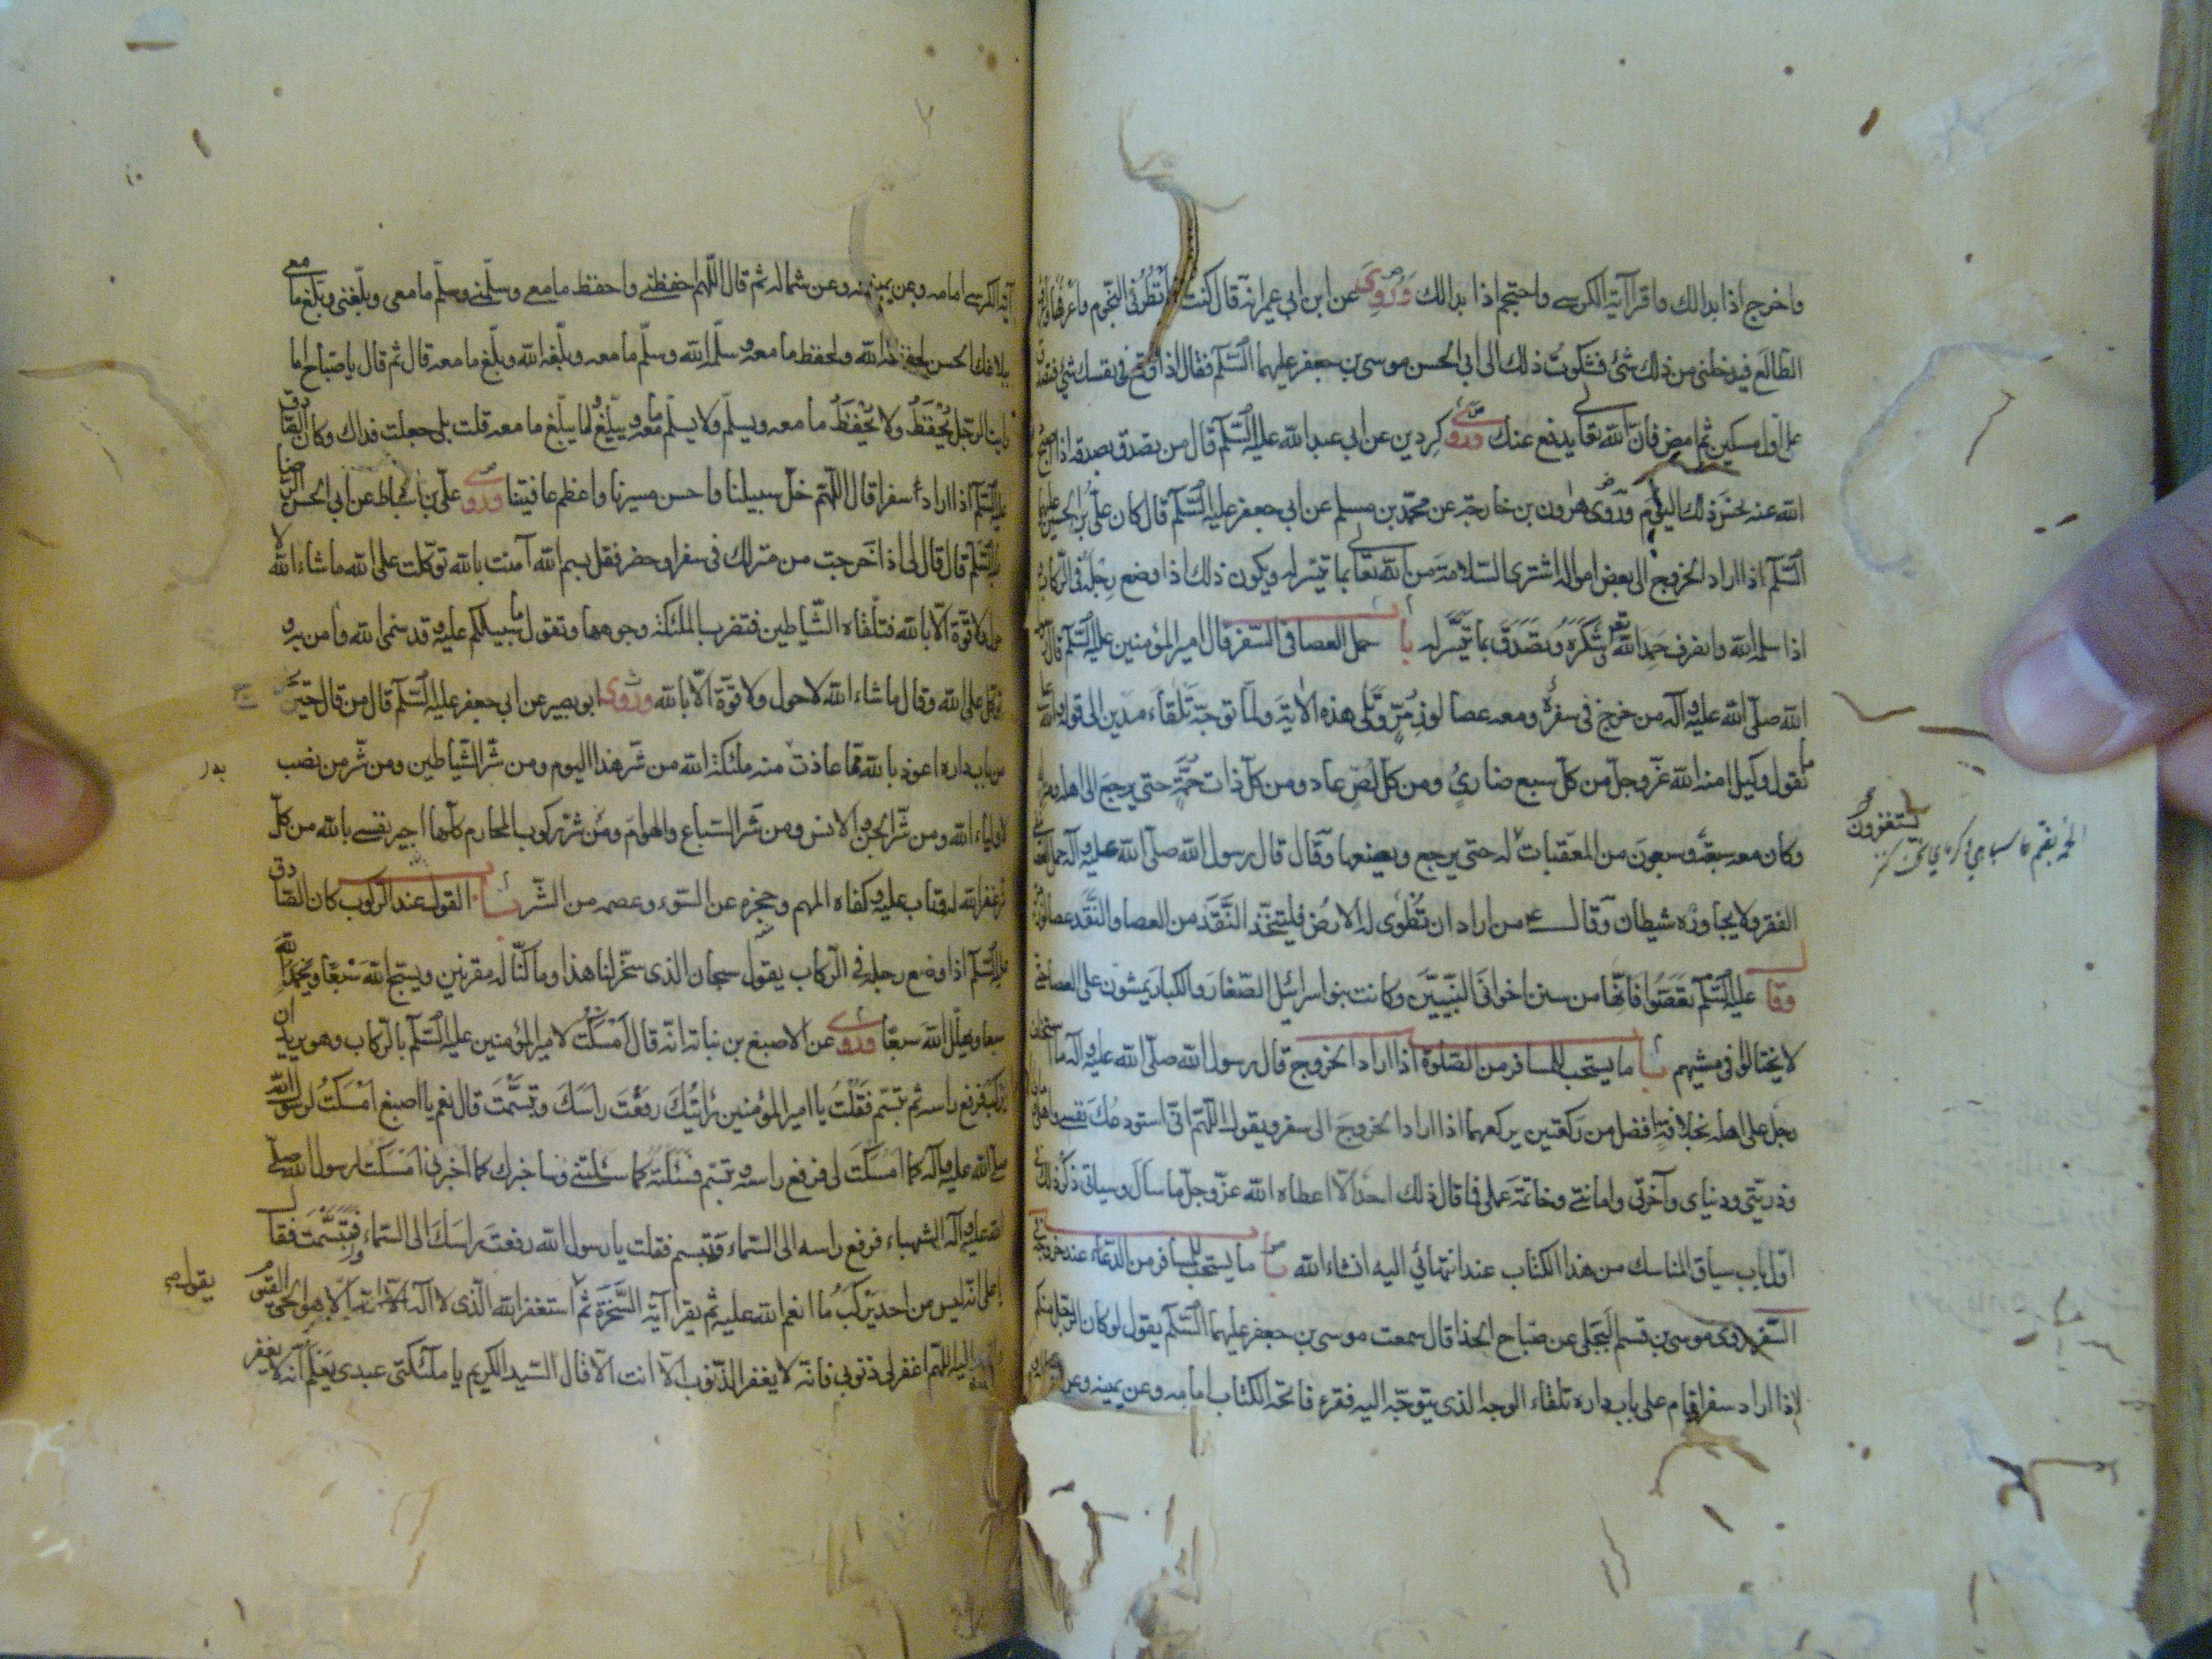 واخرج اذا بدا لك واقرأ آية الكرسي واحتجم اذا بدا لك وروي عن ابن ابي عمير انه قال كنت انظر في النجوم واعرفها واعرف
الطالع فيدخلني من ذلك شئ فشكوت ذلك الى ابي الحسن موسى بن جعفر عليهما السلم فقال اذا وقع في نفسك شئ فتصدق
على اول مسكين ثم امض فان الله تعالى يدفع عنك وروى كردين عن ابي عبد الله عليه السلم قال من تصدق بصدقة اذا اصبح دفع
الله عنه نحس ذلك اليوم وروى هرون بن خارجة عن محمد بن مسلم عن ابي جعفر عليه السلم قال كان علي بن الحسين عليهما
السلم اذا اراد الخروج الى بعض امواله اشترى السلامة من الله تعالى بما تيسر له ويكون ذلك اذا وضع رجله في الركاب
اذا سلمه الله وانصرف حمد الله تعالى وشكره وتصدق بما تيسر له باب حمل العصا في السفر قال امير المؤمنين عليه السلم قال
الله صلى الله عليه وآله من خرج في سفره ومعه عصا لوز مر وتلى هذه الاية ولما توجه تلقاء مدين الى قوله والله
ما نقول وكيل امنه الله عز وجل من كل سبع ضاري ومن كل لص عاد ومن كل ذات حمة حتى يرجع الى اهله ومنزله
وكان معه سبعة وسبعون من المعقبات له حتى يرجع ويضعها وقال قال رسول الله صلى الله عليه وآله حمل العصا
الفقر ولا يجاوره شيطان وقال ع من اراد ان تطوى له الارض فليتخذ النقد من العصا والنقد عصا لوز مر
وقال عليه السلم تعصوا فانها من سنن اخواني النبيين وكانت بنو اسرائيل الصغار والكبار يمشون على العصا حتى
لا يختالوا في مشيهم باب ما يستحب للمسافر من الصلوة اذا اراد الخروج قال رسول الله صلى الله عليه وآله ما استخلف
رجل على اهله بخلافة افضل من ركعتين يركعهما اذا اراد الخروج الى سفر ويقول اللهم اني استودعك نفسي واهلي ومالي
وذريتي ودنياى وآخرتي وامانتي وخاتمة عملي فما قال ذلك احد الا اعطاه الله عز وجل ما سال وسياتي ذكر ذلك في
اول باب سياق المناسك من هذا الكتاب عند انتهائي اليه انشاء الله باب ما يستحب للمسافر من الدعاء عند خروجه في
السفر روى موسى بن قسم البجلي عن صباح الحذا قال سمعت موسى بن جعفر عليهما السلم يقول لو كان الرجل منكم
اذا اراد سفرا قام على باب داره تلقاء الوجه الذي يتوجه اليه فقرء فاتحة الكتاب امامه وعن يمينه وعن
يستغفرون
آية الكرسي امامه وعن يمينه وعن شماله ثم قال اللهم احفظني واحفظ ما معي وسلمني وسلم ما معي وبلغني وبلغ ما معي
ببلاغك الحسن لحفظه الله ولحفظ ما معه وسلمه الله وسلم ما معه وبلغه الله وبلغ ما معه قال ثم قال يا صباح اما
رايت الرجل يحفظ ولا يحفظ ما معه ويسلم ولا يسلم ما معه ويبلغ ولا يبلغ ما معه قلت بلى جعلت فداك وكان الصادق
عليه السلم اذا اراد سفرا قال اللهم خل سبيلنا واحسن مسيرنا واعظم عافيتنا وروى علي بن اسباط عن ابي الحسن الرضا
عليه السلم قال قال لي اذا خرجت من منزلك في سفر او حضر فقل بسم الله آمنت بالله توكلت على الله ما شاء الله لا
حول ولا قوة الا بالله فتلقاه الشياطين فتضرب الملئكة وجوهها وتقول ما سبيلكم عليه وقد سمى الله وامن به و
توكل على الله وقال ما شاء الله لا حول ولا قوة الا بالله وروى ابو بصير عن ابي جعفر عليه السلم قال من قال حين يخرج
من باب داره اعوذ بالله مما عاذت منه ملئكة الله من شر هذا اليوم ومن شر الشياطين ومن شر من نصب
بدر
لاولياء الله ومن شر الجن والانس ومن شر السباع والهوام ومن شر ركوب المحارم كلها اجير نفسي بالله من كل
شر غفر الله له وتاب عليه وكفاه المهم وحجزه عن السوء وعصمه من الشر باب القول عند الركوب كان الصادق
عليه السلم اذا وضع رجله في الركاب يقول سبحان الذي سخر لنا هذا وما كنا له مقرنين ويسبح الله سبعا ويحمد الله
سبعا ويهلل الله سبعا وروى عن الاصبغ بن نباتة انه قال امسكت لامير المؤمنين عليه السلم بالركاب وهو يريد ان
يركب فرفع راسه ثم تبسم فقلت يا امير المؤمنين رايتك رفعت راسك وتبسمت قال نعم يا اصبغ امسكت لرسول الله
صلى الله عليه وآله كما امسكت لي فرفع راسه وتبسم فسئلته كما سئلتني وساخبرك كما اخبرني امسكت لرسول الله صلى
الله عليه وآله الشهباء فرفع راسه الى السماء وتبسم فقلت يا رسول الله رفعت راسك الى السماء وتبسمت فقال
يا علي انه ليس من احد يركب ما انعم الله عليه ثم يقرا آية السخرة ثم استغفر الله الذي لا اله الا هو الحي القيوم
يقول
واتوب اليه اللهم اغفر لي ذنوبي فانه لا يغفر الذنوب الا انت الا قال السيد الكريم يا ملئكتي عبدي يعلم انه لا يغفر